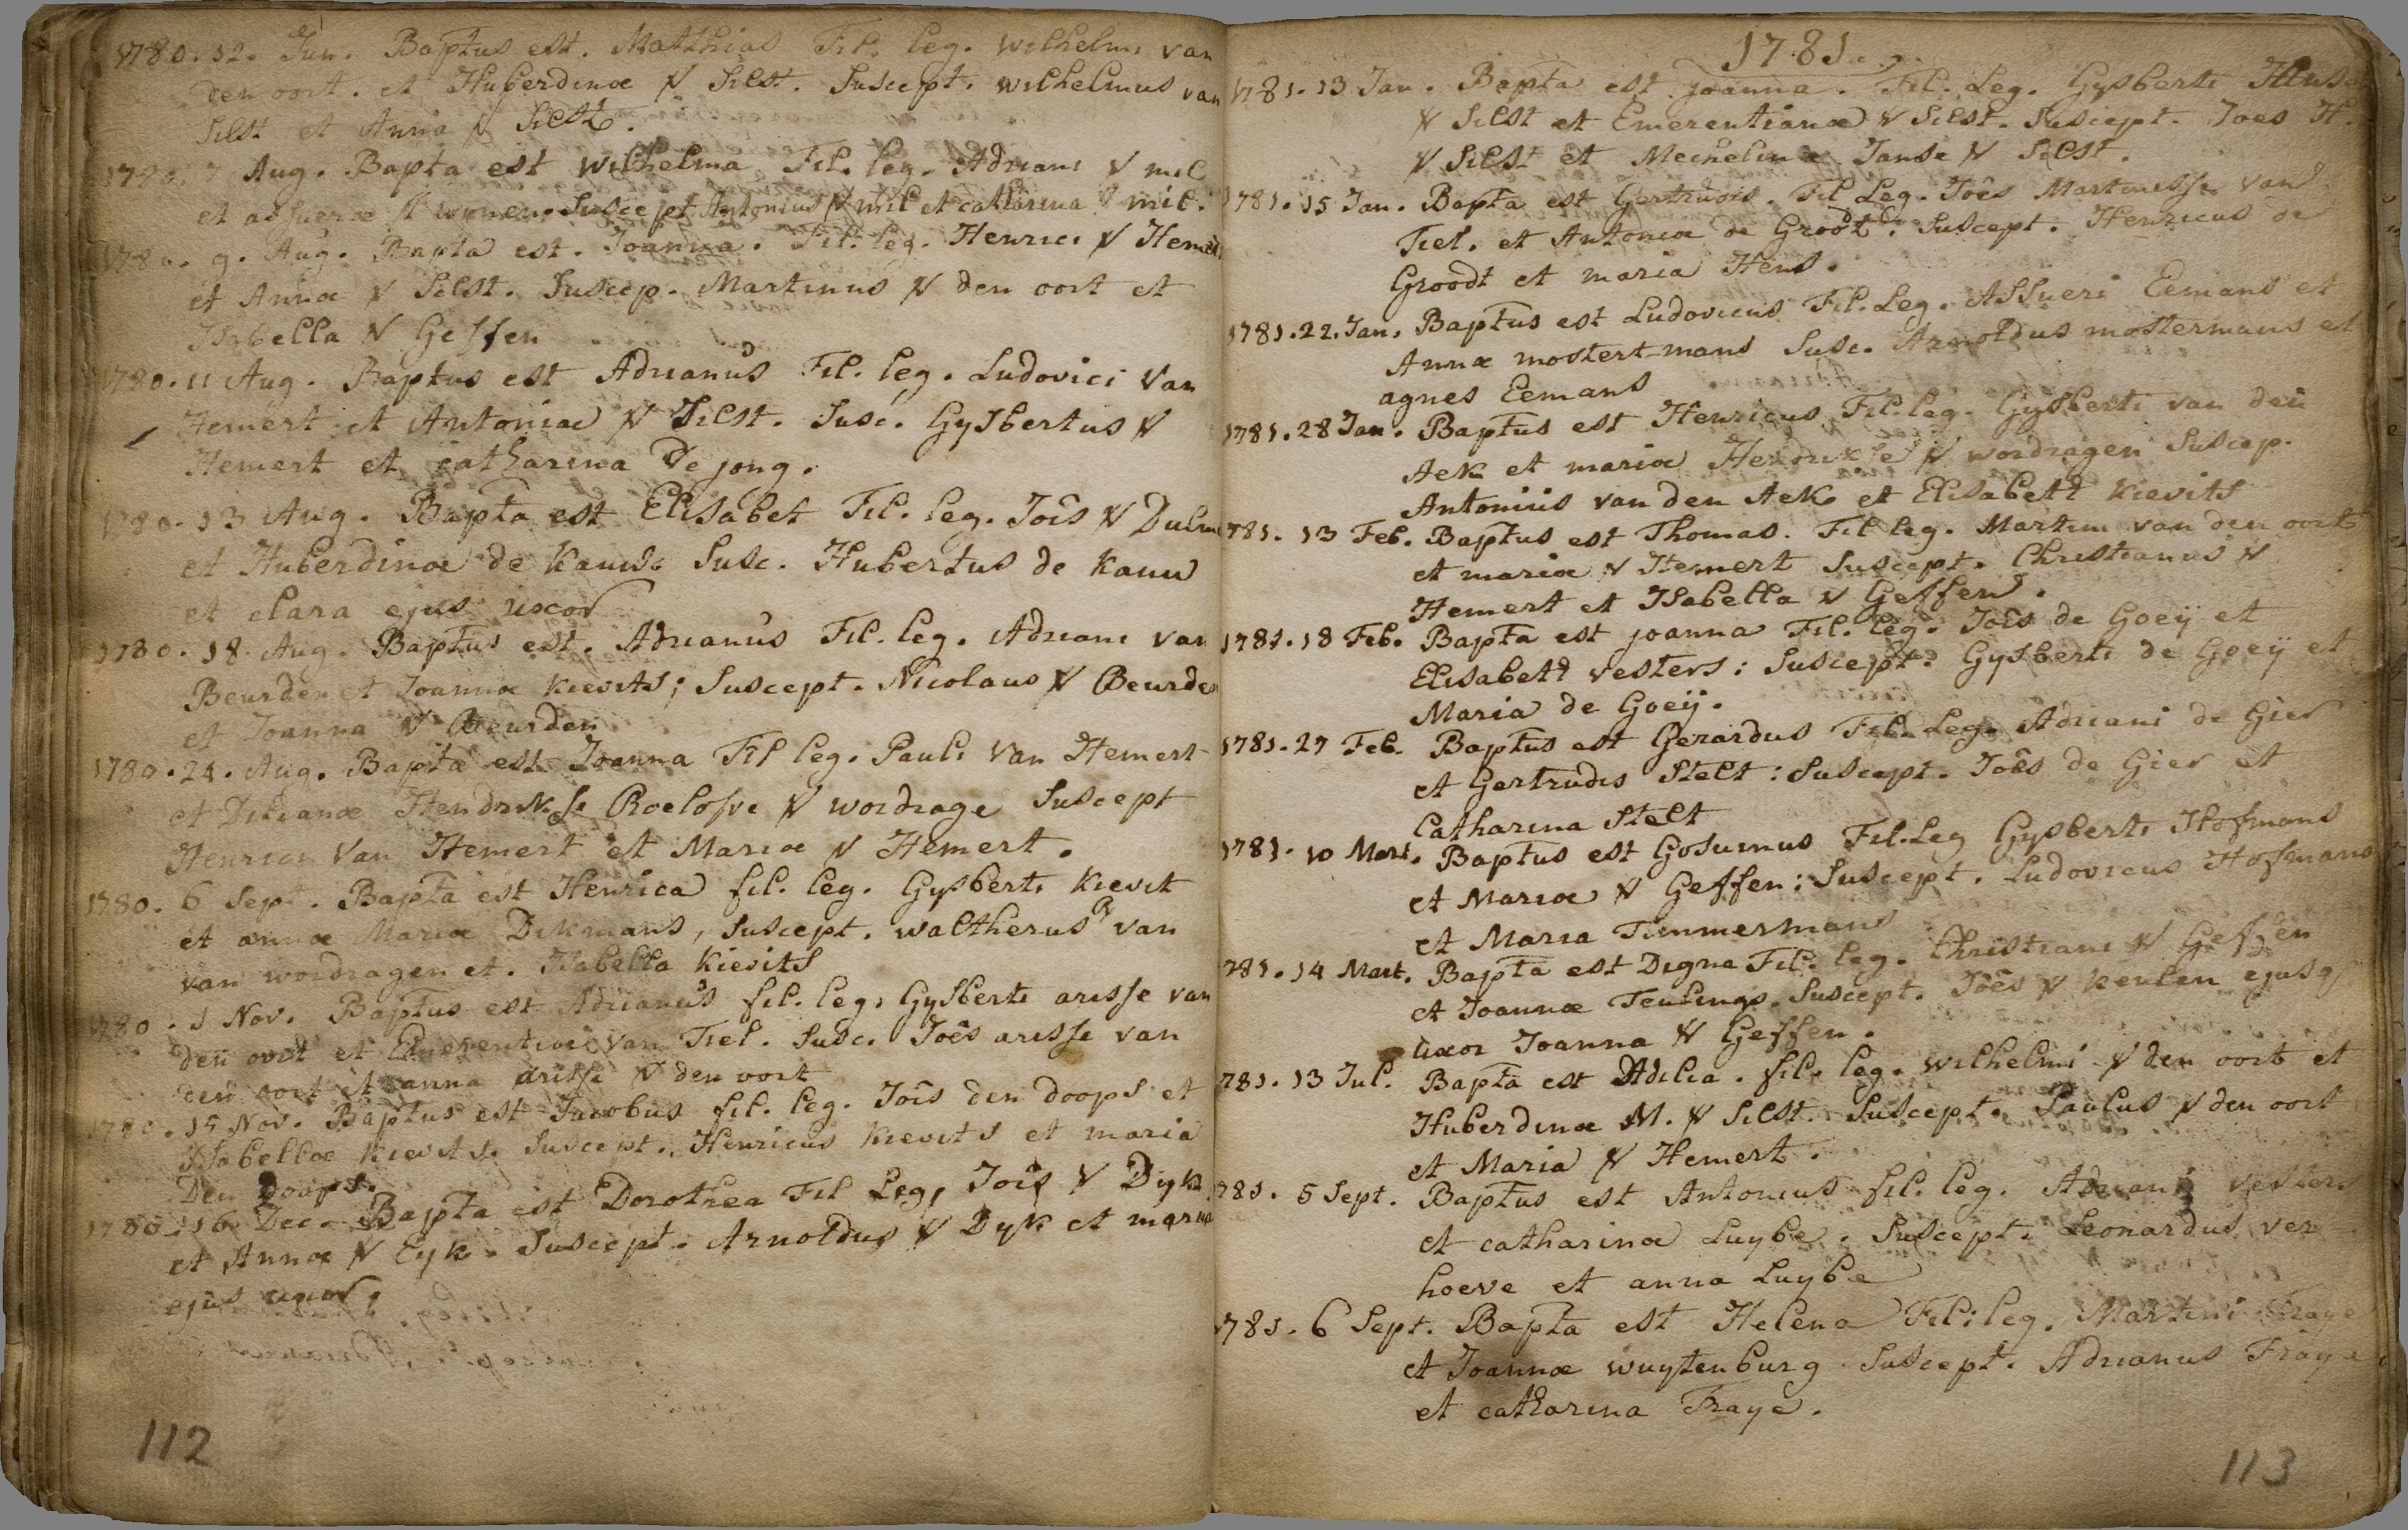 1780. 12. Jun. Baptus est. Matthias Fil. leg. wilhelmi van
den oort. et Huberdinæ V Silst. Suscept. wilhelmus van
Silst et Anna V Silst.
1780. 7 Aug. Bapta est wilhelma Fil. leg. Adriani V mil
et assueræ V Suscept Antonius V mil et catharina V mil.
1780. 9. Aug. Bapta est. Joanna. Fil. leg. Henrici V Hemert
et Annæ V Silst. Suscep. Martinus V den oort et
Isabella V Geffen
1780. 11 Aug. Baptus est Adrianus Fil. leg. Ludovici Van
Hemert et Antoniæ V Silst. Susc. Gysbertus V
Hemert et catharina De jong.
1780. 13 Aug. Bapta est Elisabet Fil. leg. Jois V
et Huberdinæ de Kauw. Susc. Hubertus de Kauw
et clara ejus uxor
1780. 18. Aug. Baptus est. Adrianus Fil. leg. Adriani van
Beurden et Joannæ Kievits; Suscept. Nicolaus V Beurden
et Joanna V Beurden
1780. 24. Aug. Bapta est Joanna Fil leg. Pauli Van Hemert
et Hendrikse V wordrage Suscept
Henrici Van Hemert et Mariæ V Hemert.
1780. 6 Sept. Bapta est Henrica fil. leg. Gysberti Kievit
et annæ Mariæ Dikmans, Suscept. waltherus van
van wordragen et. Isabella Kievits
1780. 1 Nov. Baptus est Adrianus fil. leg. Gysberti arisse van
den oort et van Tiel. Susc. Joês arisse van
den oort et anna arisse V den oort
1780. 15 Nov. Baptus est Jacobus fil. leg. Jois den doops et
Isabellæ Kievits. Suscept. Henricus Kievits et maria
Den Doops.
1780. 16. Dec. Bapta est Dorothea Fil Leg, Jois V Dijk
et Annæ V Eyk. Suscept. Arnoldus V Dyk et maria
ejus uxor.
112
1781.
1781. 13 Jan. Bapta est joanna. Fil. Leg. Gysberti
V Silst et Emerentianæ V Silst. Suscept. Joes H.
V Silst et Mechelina Janse V Silst.
1781. 15 Jan. Bapta est Gertrudis. Fil Leg. Joês Martinesse van
Tiel. et Antoniæ de Groodt. Suscept. Henricus de
Groodt et maria Hens.
1781. 22. Jan. Baptus est Ludovicus Fil. Leg. Assueri Eemans et
Annæ mostert-mans Susc. Arnoldus mostermans et
agnes Eemans
1781. 28 Jan. Baptus est Henricus Fil. leg. Gysberti van den
Aek et mariæ Hendrikse V wordragen Suscep.
Antonius van den Aek et Elisabett Kievits
1781. 13 Feb. Baptus est Thomas. Fil leg. Martini van den oort
et mariæ V Hemert Suscept. Christianus V
Hemert et Isabella V Geffen.
1781. 18 Feb. Bapta est joanna Fil. leg. Joîs de Goeÿ et
Elisabett vesters: Suscept. Gysberti de Goeÿ et
Maria de Goeÿ.
1781. 27 Feb. Baptus est Gerardus Fil. Leg. Adriani de Gier
et Gertrudis Stelt: Suscept. Joês de Gier et
Catharina Stelt
1781. 10 Mart. Baptus est Gosuinus Fil. Leg Gysberti Hofmans
et Mariæ V Geffen; Suscept. Ludovicus Hofmans
et Maria Timmermans
1781. 14 Mart. Bapta est Digna Fil. leg. Christiani V Geffen
et Joannæ Teulings. Suscept. Joês V keulen ejusq
uxor Joanna V Geffen.
1781. 13 Jul. Bapta est Adilia. fil. leg. wilhelmi V den oort et
Huberdinæ M. V Silst. Suscept. Paulus V den oort
et Maria V Hemert.
1781. 5 Sept. Baptus est Antonius fil. leg. Adriani vesters
et catharinæ Luybe. Suscept. Leonardus ver
hoeve et anna Luybe
1781. 6 Sept. Bapta est Helena Fil: leg. Martini Fraye
et Joannæ wuytenburg Suscept. Adrianus Fraye
et catharina Fraye.
113